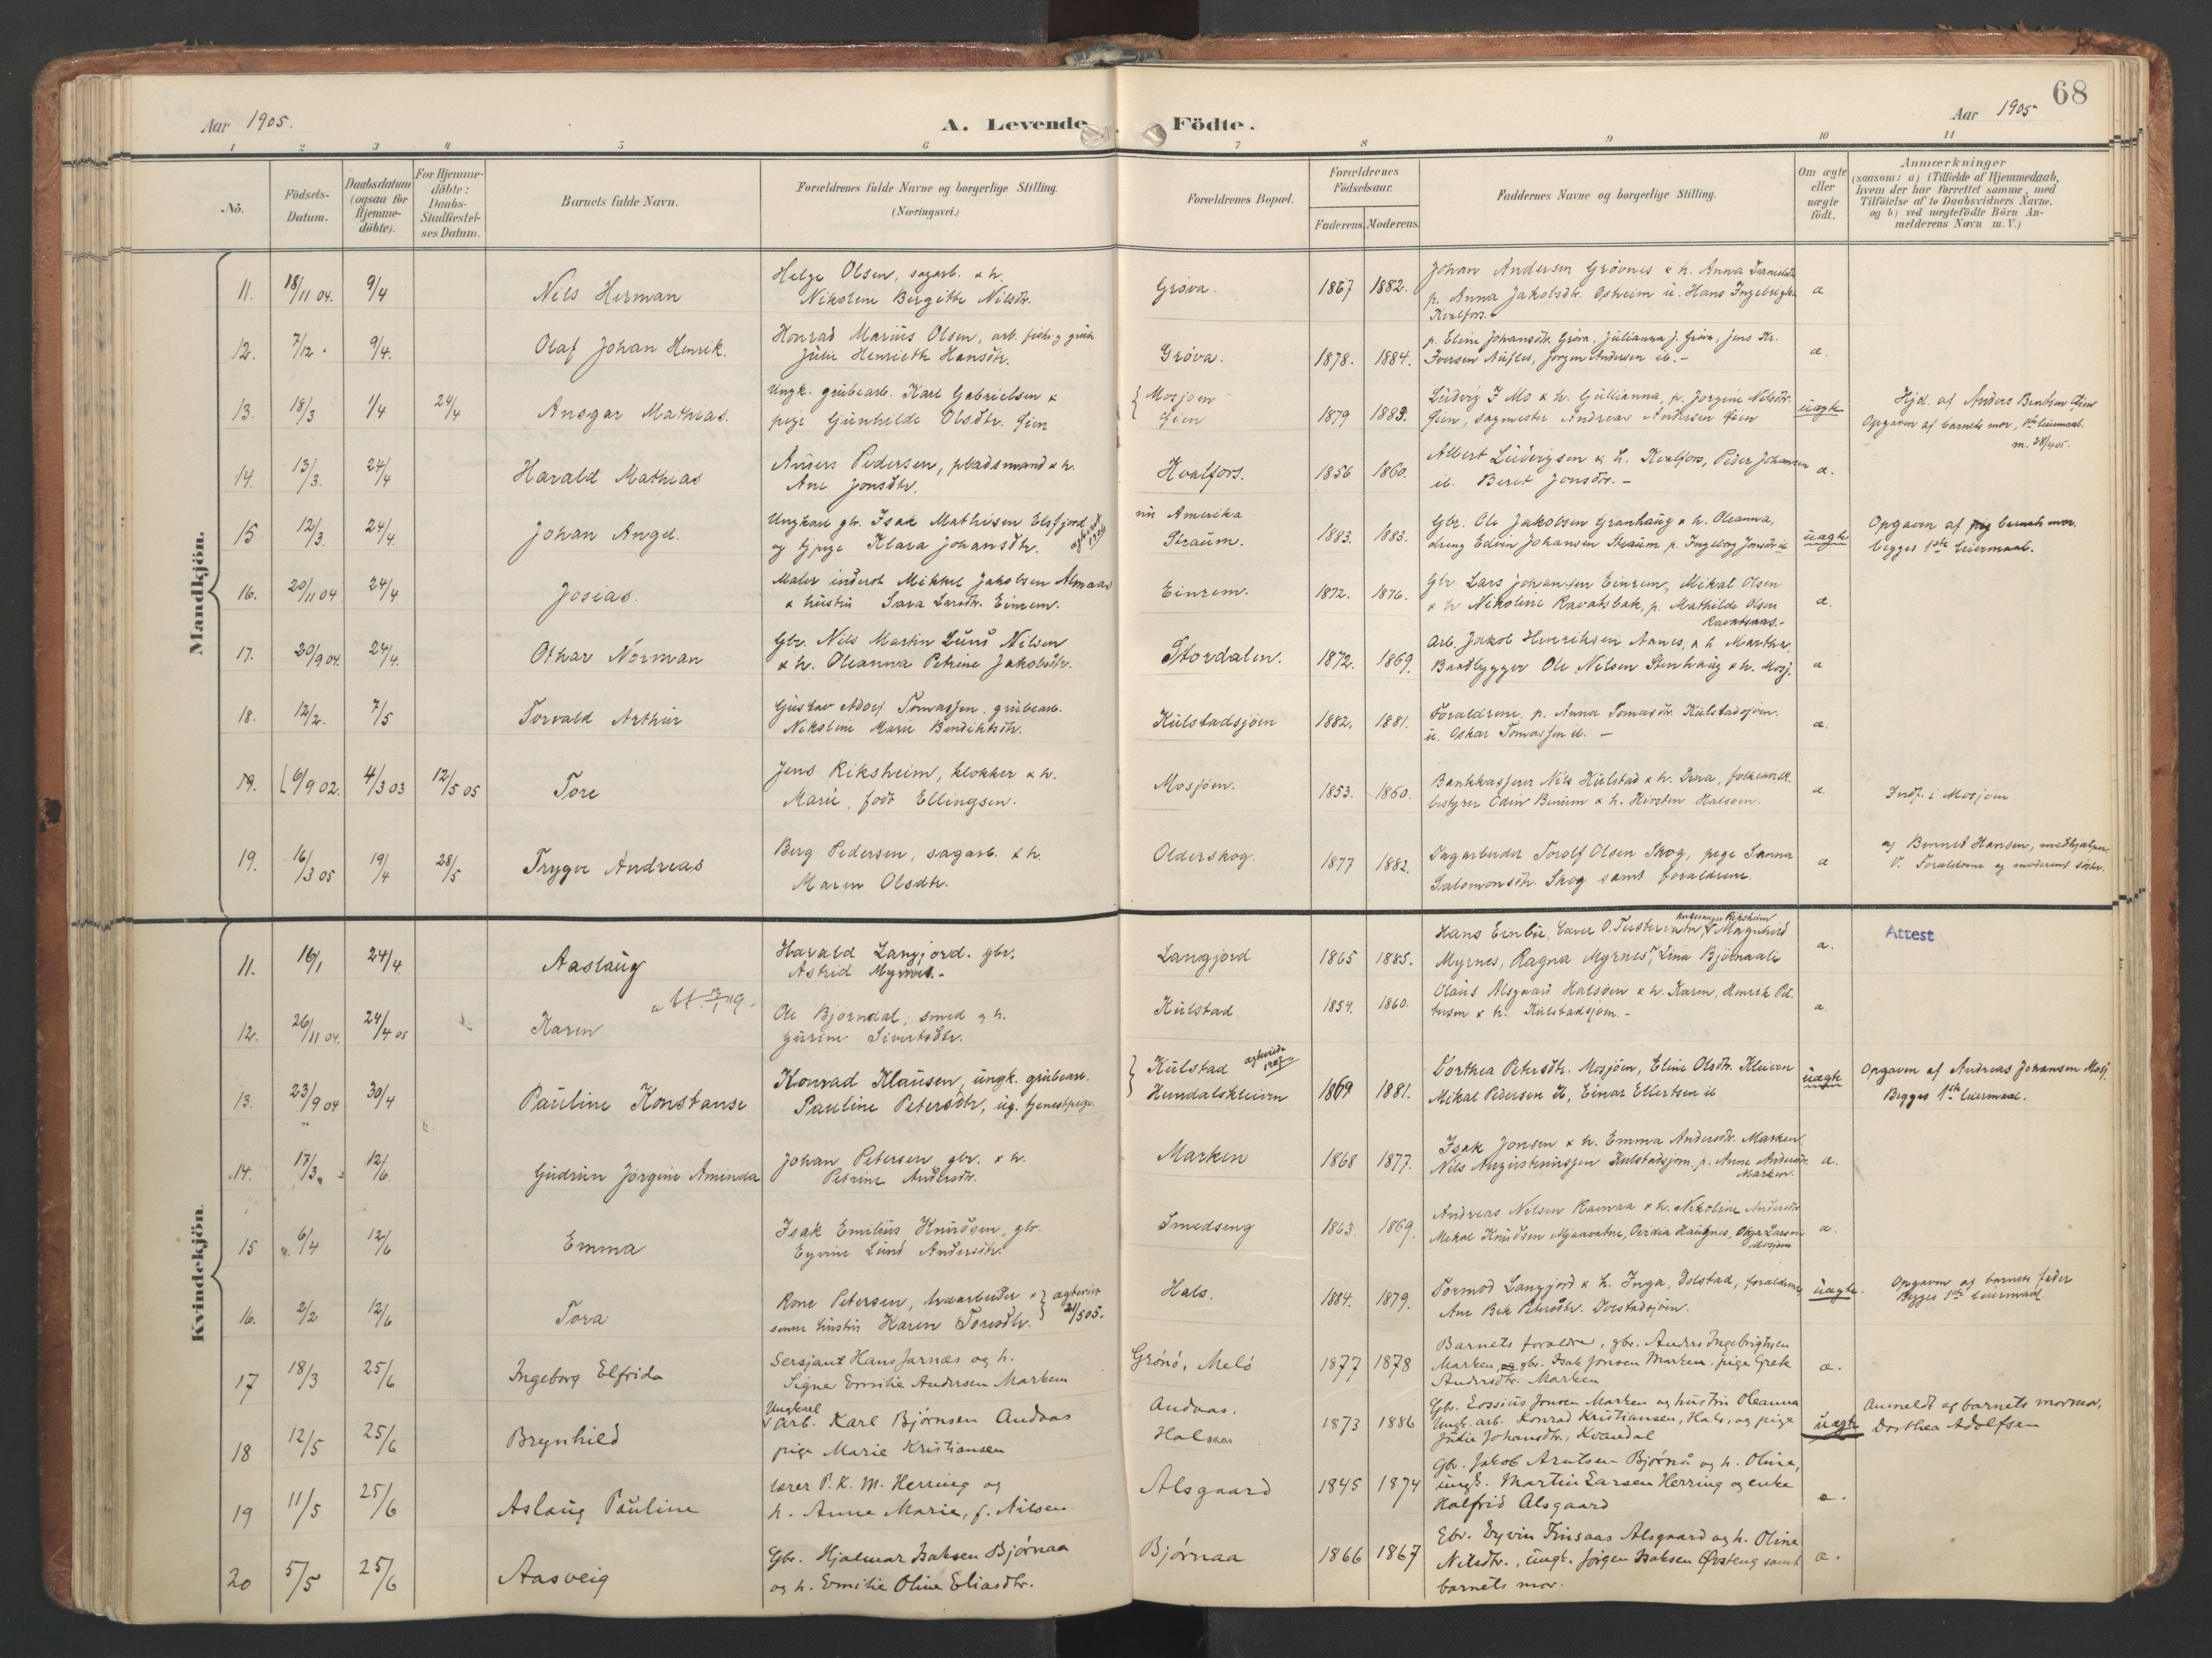 68
Aar 1905.
A. Levende
Födte.
Aar 1905
1 2 3 4 5 6 7 8 9 10 11
No.
Födsels-Datum.
Daabsdatum (ogsaa for Hjemme-döbte).
For Hjemme-döbte: Daabs-Stadfæstel-ses Datum.
Barnets fulde Navn.
Forældrenes fulde Navne og borgerlige Stilling.
(Næringsvei.)
Forældrenes Bopæl.
Forældrenes Födselsaar.
Faderens. Moderens.
Faddernes Navne og borgerlige Stilling.
Om ægte eller uægte födt.
Anmærkninger
(saasom: a) i Tilfælde af Hjemmedaab, hvem der har forrettet samme, med Tilföielse af to Daabsvidners Navne, og b) ved uægtefödte Börn An-melderens Navn m. V.)
Mandkjön.
11. 18/11 04. 9/4 Nils Herman
Helge Olsen, sagarb. & h.
Nikoline Birgitte Nilsdtr.
Grøva. 1867 1882.
Johan Andersen Grøvnes & h. Anna
p. Anna Jakobsdtr. Osheim u. Hans
Kvalfors. æ
12. 7/12 9/4. Olaf Johan Henrik.
Konrad Marius Olsen, arb.
Julie Henriette Hansdtr.
Grøva. 1878. 1884.
p. Eline Johansdtr. Grøva, Julianna J. Grøva, Jens Kr.
Iversen Aufles, Jørgen Andersen ib. - æ.
13. 18/3 1/4 24/4 Ansgar Mathias.
Ungk. grubearb. Karl Gabrielsen &
pige Gunhilde Olsdtr. Øien
Mosjøen
Øien 1879 1883.
Ludvig J Mo & h. Gullianna, p. Jorgine Nilsdtr.
Øien, sagmester Andreas Andersen Øien uægte
Hjd. af Anders Bentsen Øien
Opgaven af barnets mor, 1ste leiermaal.
m. 28/4 05.
14. 13/3. 24/4 Harald Mathias
Anders Pedersen, pladsmand & h.
Ane Jonsdtr.
Kvalfors. 1856 1860.
Albert Ludvigsen & h. Kvalfors, Peder Johansen
ib. Berit Jonsdtr. - æ.
15 12/3. 24/4. Johan Angel.
Ungkarl gbr. Isak Mathisen Elsfjord
og tj pige Klara Johansdtr.
nu Amerika
Straum. 1883. 1883.
Gbr. Ole Jakobsen Granhaug & h. Oleanna,
dreng Edvin Johansen Straum p. Ingeborg Jonsdtr ib uægte
Opgaven af barnets mor.
begges 1ste leiermaal.
16. 20/11 04 24/4 Josias.
Maler inderst Mikkel Jakobsen Almaas
& hustru Sara Larsdtr. Einrem.
Einrem. 1872. 1876.
Gbr. Lars Johansen Einrem, Mikal Olsen
& h Nikoline Ravatsbak, p. Mathilde Olsen
æ.
17. 20/9 04. 24/4. Othar Norman
Gbr. Nils Martin Lund Nilsen
& h. Oleanna Petrine Jakobsdtr.
Stordalen. 1872. 1869.
Arb. Jakob Henriksen Aanes, & h Martha,
Baadbygger Ole Nilsen Stenhaug & h. Mosj. æ
18. 12/2. 7/5 Torvald Arthur
Gustav Adolf Tomassen, grubearb.
Nikoline Marie Bendiktsdtr.
Kulstadsjøen 1882. 1881.
Forældrene, p. Anna Tomasdtr. Kulstadsjøen.
u. Oskar Tomassen ib. - æ.
19. 6/9 02. 4/3 03 12/5 05 Tore
Jens Riksheim, klokker & h.
Marie, født Ellingsen.
Mosjøen. 1853. 1860.
Bankkasserer Nils Kulstad & h. Dina,
bestyrer Odin Benum & h. Kirsten Halsøen. æ
Indf. i Mosjøen
19. 16/3 05 19/4 28/5 Trygve Andreas
Berg Pedersen, sagarb. & h.
Maren Olsdtr.
Olderskog. 1877 1882.
Sagarbeider Torolf Olsen Skog, pige Sanna
Salomonsdtr. Skog samt forældrene. æ
af Bernt Hansen, medhjælper
V. Forældrene og moderens søster.
Kvindekjön.
11. 16/1 24/4. Aaslaug
Harald Langjord. gbr.
Astrid Myrnes.
Langjord 1865 1885.
Hans Einbu, Magnhild
Myrnes, Ragna Myrnes, Lina Bjørnaali æ.
Attest
12. 26/11 04. 24/4 05 Karen
Ole Bjørndal, smed og h.
Gurine Sivertsdtr.
Kulstad. 1854. 1860.
Olaus Alsgaard Halsøen & h. Karen, Henrik Pet-
tersen & h. Kulstadsjøen. - æ.
13. 23/9 04 30/4 Pauline Konstanse
Konrad Klausen, ungk. grubearb.
Pauline Petersdtr, ug. tjenestpige.
Kulstad ægteviede 1907
Hundalskleiven 1869 1881.
Dorthea Petersdtr. Mosjøen, Eline Olsdtr. Kleiven
Mikal Pedersen ib, Einar Ellertsen ib uægte
Opgaven af Andreas Johansen Mosj.
Begges 1ste leiermaal.
14. 17/3 12/6. Gudrun Jørgine Aminda
Johan Petersen gbr. & h.
Petrine Andersdtr.
Marken 1868 1877.
Isak Jonsen & h. Emma Andersdtr. Marken
Nils Augustinussen Kulstadsjøen, p. Anne Andersdtr.
Marken. æ.
15 6/4 12/6 Emma
Isak Emilius Knudsen, gbr.
Eyvine Lund Andersdtr.
Smedseng 1863. 1869.
Andreas Nilsen Ravnaa & h. Nikoline Andersdtr
Mikal Knudsen Mjaavatne, Haugnes, Olga Larsen
Mosjøen æ.
16. 2/2 12/6 Tora
Rone Petersen, &
senere hustru Karen Toresdtr. ægteviet 21/5 05.
Hals. 1884. 1879.
Tormod Langjord & h. Inga, Dolstad, forældrene
Ane Bek Petersdtr. Dolstadsjøen. uægte.
Opgaven af barnets fader
Begges 1ste leiermaal.
17 18/3 25/6 Ingeborg Elfrida
Sersjant Hans Jarnæs og h.
Signe Emilie Andersen Marken
Grønø, Melø 1877 1878
Barnets forældre, gbr. Anders Ingebrigtsen
Marken, gbr. Isak Jonsen Marken, pige Grete
Andersdtr. Marken æ.
18 12/5 25/6 Brynhild
Ungkarl
arb. Karl Bjørnsen Andaas
pige Marie Kristiansen
Andaas.
Halsaas 1873 1886
Gbr. Lossius Jonsen Marken og hustru Oleanna
Ungk. arb. Konrad Kristiansen, Hals, og pige
Julie Johansdtr., Kvandal uægte
Anmeldt af barnets mormor,
Dorthea Adolfsen
19 11/5 25/6 Aslaug Pauline
lærer P. K. M. Herring og
h. Anne Marie, f. Nilsen
Alsgaard 1845 1874
Gbr. Jakob Arntsen Bjørnå og h. Oline,
ungk. Martin Larsen Herring og enke
Halfrid Alsgaard æ.
20 5/5 25/6 Aasveig
Gbr. Hjalmar Isaksen Bjørnaa
og h. Emilie Oline Eliasdtr.
Bjørnaa 1866 1867
Gbr. Eyvin Finsaas Alsgaard og h. Oline
Nilsdtr., ungk. Jørgen Isaksen Øvsteng samt
barnets mor. æ.